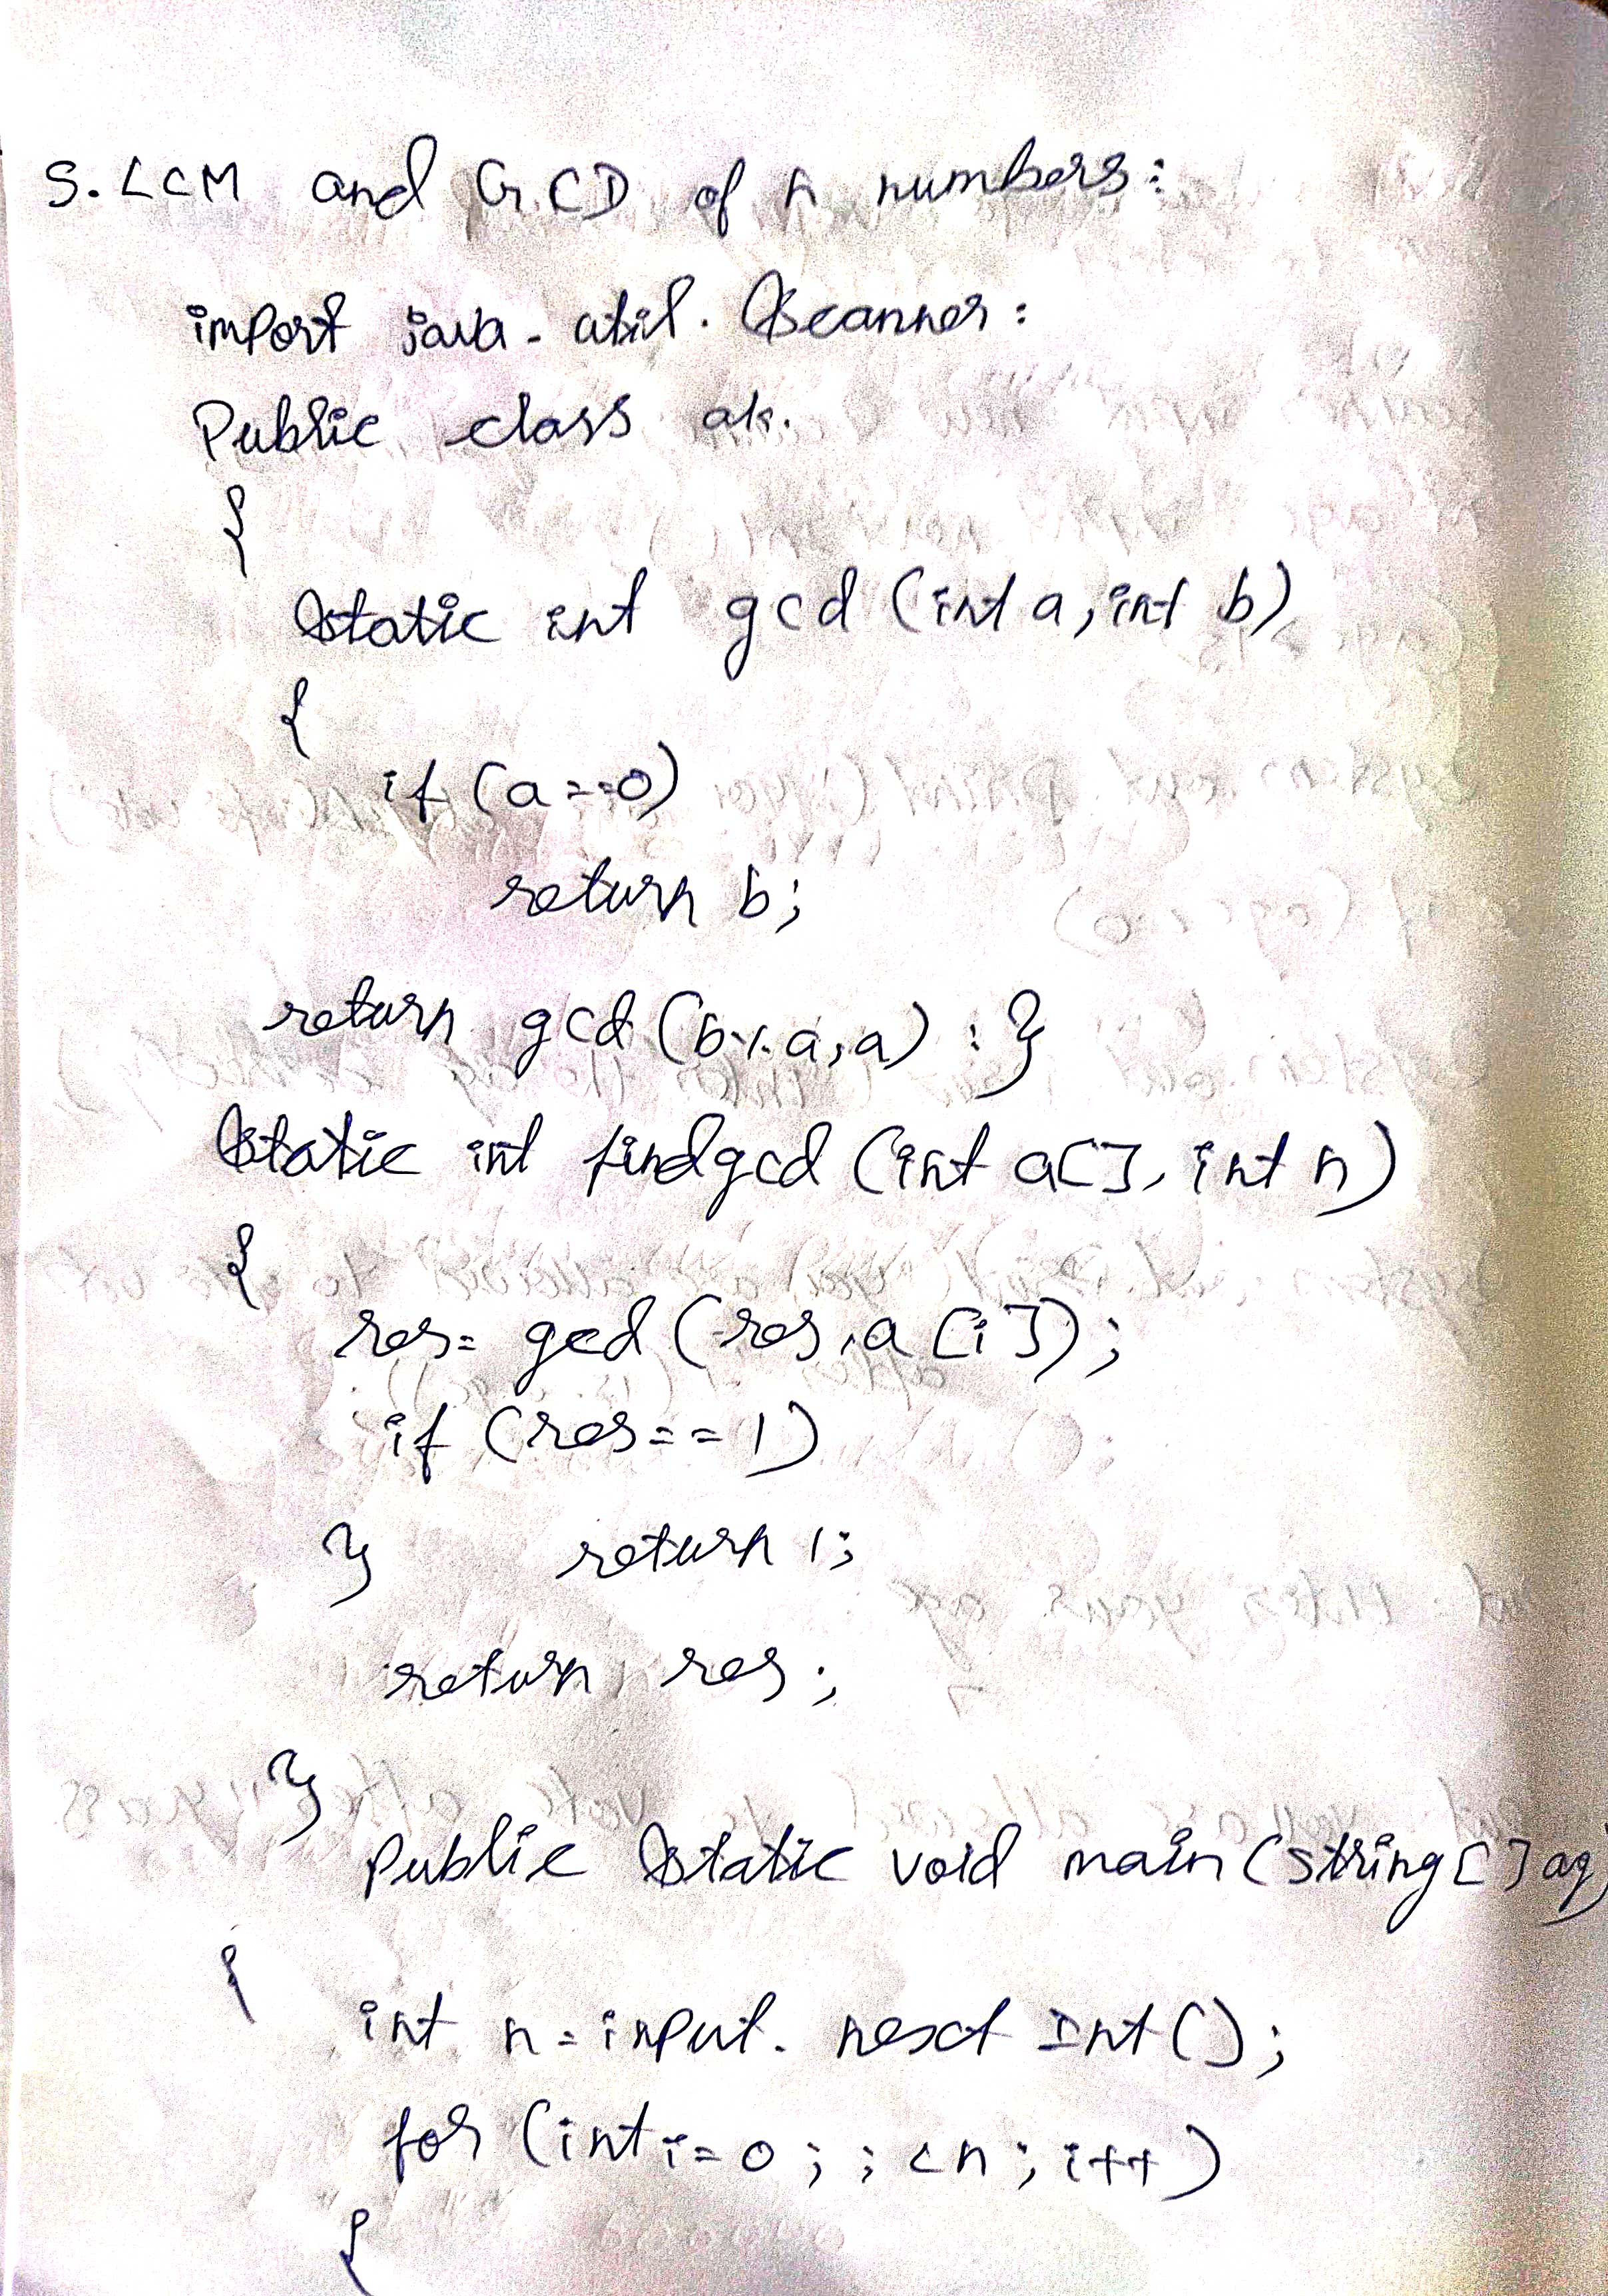 5. LCM and GCD of n numbers:
import java.util.Scanner:
Public class ak.
{
static int gcd (int a, int b)
{
if (a==0)
return b;
return gcd (b%a,a) : }
static int findgcd (int a[], int n)
{
res= gcd (res,a[i]);
if (res==1)
} return 1;
return res;
}
public static void main (string[] ag)
{
int n=input. next Int();
for (int i=0; ; <n; i++)
{